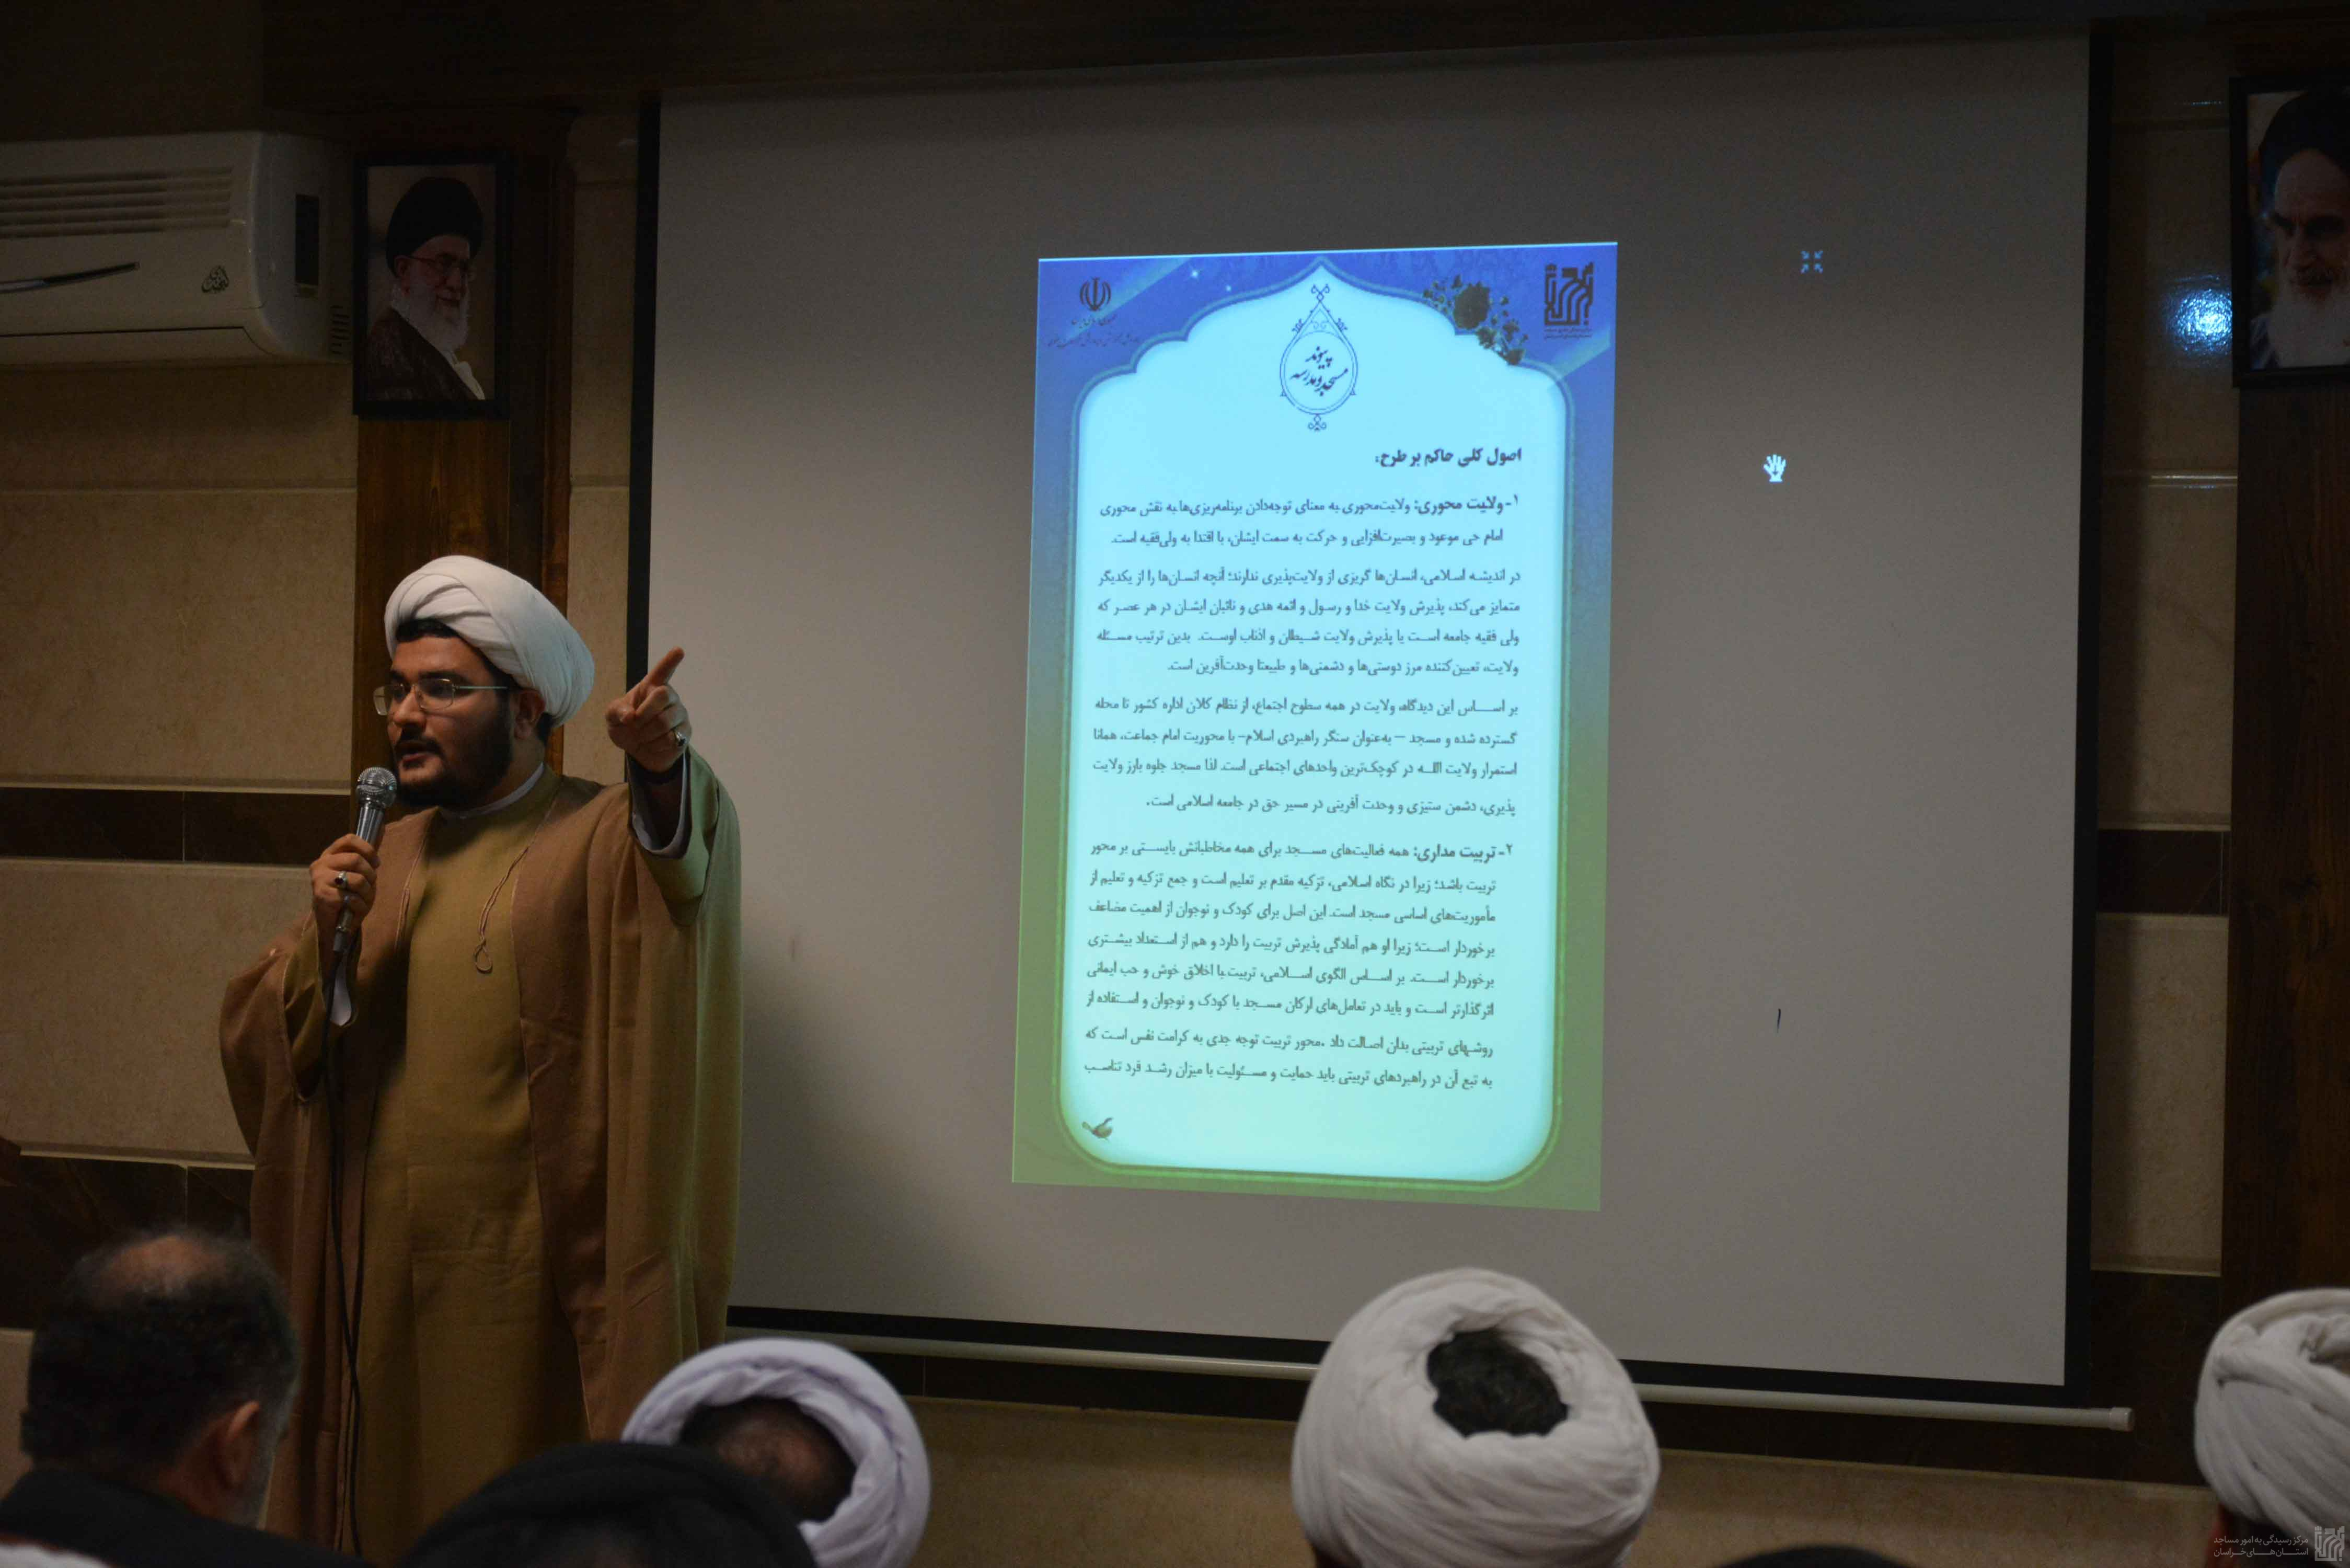 پیوند
مسجد و مدرسه
اصول کلی حاکم بر طرح:
۱- ولایت محوری: ولایت‌محوری به معنای توجه‌دادن برنامه‌ریزی‌ها به نقش محوری
امام حی موعود و بصیرت‌افزایی و حرکت به سمت ایشان، با اقتدا به ولی‌فقیه است.
در اندیشه اسلامی، انسان‌ها گریزی از ولایت‌پذیری ندارند؛ آنچه انسان‌ها را از یکدیگر
متمایز می‌کند، پذیرش ولایت خدا و رسول و ائمه هدی و نائبان ایشان در هر عصر که
ولی فقیه جامعه است یا پذیرش ولایت شیطان و اذناب اوست. بدین ترتیب مسئله
ولایت، تعیین‌کننده مرز دوستی‌ها و دشمنی‌ها و طبیعتا وحدت‌آفرین است.
بر اساس این دیدگاه، ولایت در همه سطوح اجتماع، از نظام کلان اداره کشور تا محله
گسترده شده و مسجد – به‌عنوان سنگر راهبردی اسلام– با محوریت امام جماعت، همانا
استمرار ولایت الله در کوچک‌ترین واحدهای اجتماعی است. لذا مسجد جلوه بارز ولایت
پذیری، دشمن ستیزی و وحدت آفرینی در مسیر حق در جامعه اسلامی است.
۲- تربیت مداری: همه فعالیت‌های مسجد برای همه مخاطبانش بایستی بر محور
تربیت باشد؛ زیرا در نگاه اسلامی، تزکیه مقدم بر تعلیم است و جمع تزکیه و تعلیم از
مأموریت‌های اساسی مسجد است. این اصل برای کودک و نوجوان از اهمیت مضاعف
برخوردار است؛ زیرا او هم آمادگی پذیرش تربیت را دارد و هم از استعداد بیشتری
برخوردار است. بر اساس الگوی اسلامی، تربیت با اخلاق خوش و حب ایمانی
اثرگذارتر است و باید در تعامل‌های ارکان مسجد با کودک و نوجوان و استفاده از
روشهای تربیتی بدان اصالت داد .محور تربیت توجه جدی به کرامت نفس است که
به تبع آن در راهبردهای تربیتی باید حمایت و مسئولیت با میزان رشد فرد تناسب
مرکز رسیدگی به امور مساجد
استان‌های خراسان